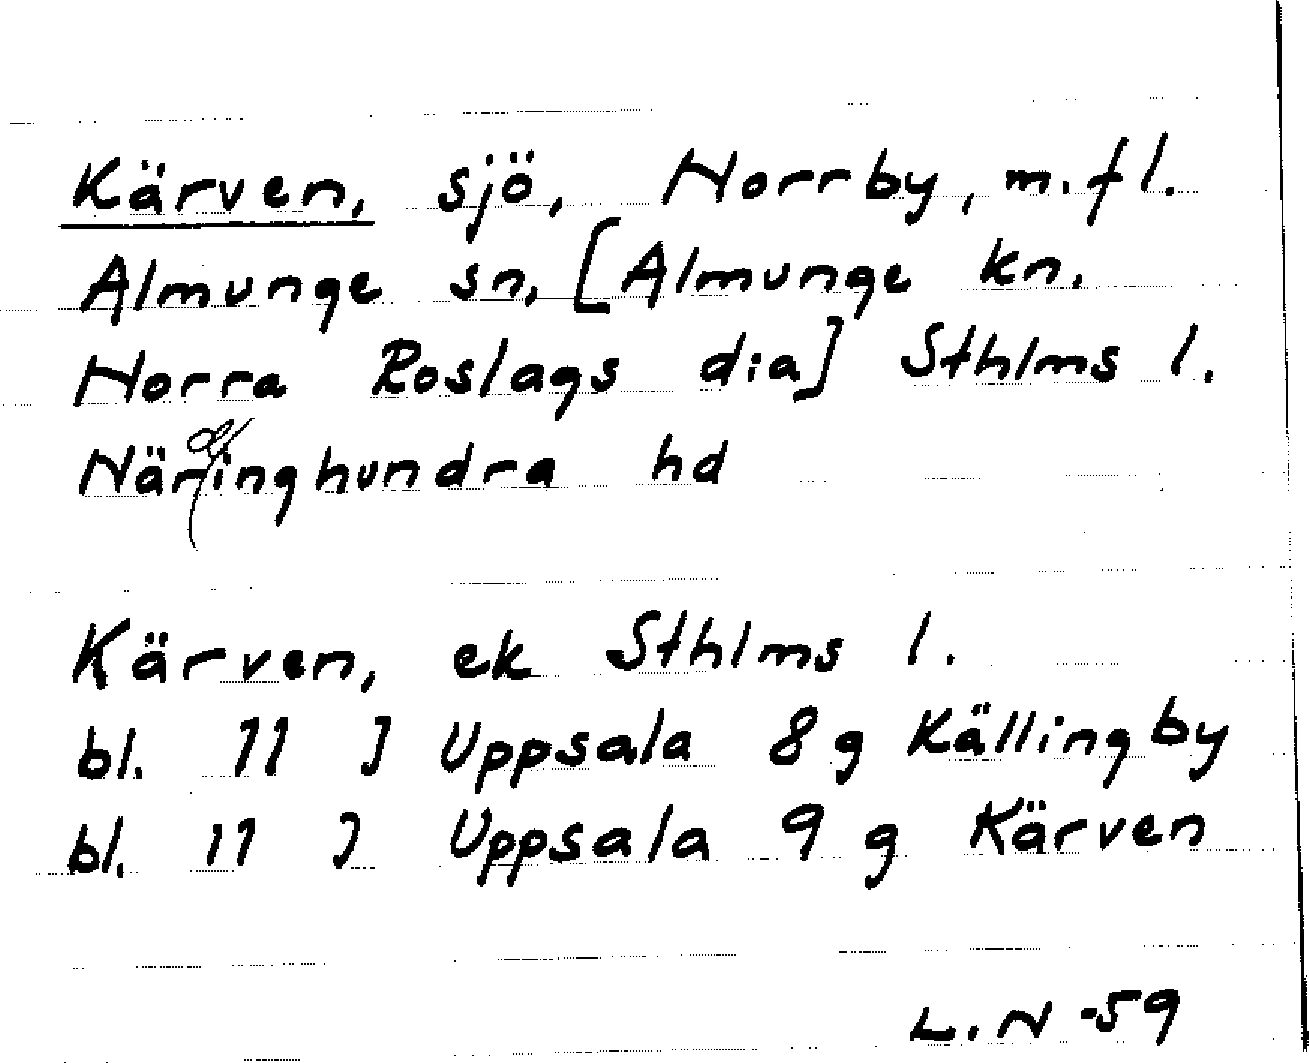 Kärven, sjö, Norrby, m.fl.
Almunge sn, [Almunge kn.
Norra Roslags dia] Sthlms l.
Näringhundra hd
Kärven, ek Sthlms l.
bl. 11 J Uppsala 8 g Källingby
bl. 11 J Uppsala 9 g Kärven
L. N -59